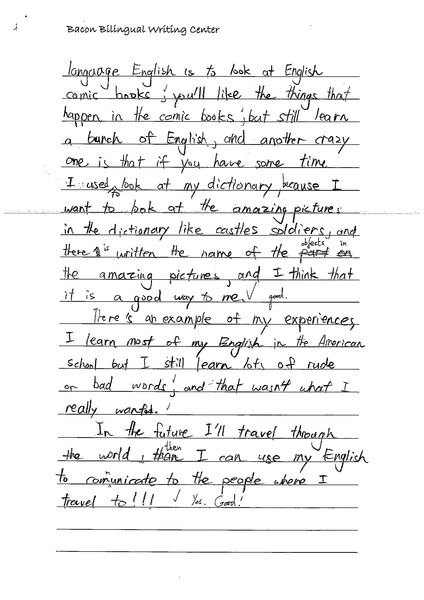 Bacon Bilingual Writing Center
language English is to look at English
comic books; you'll like the things that
happen in the comic books; but still learn
a bunch of English, and another crazy
one is that if you have some time
I used to look at my dictionary, because I
want to look at the amazing pictures
in the dictionary like castles soldiers, and
there is written the name of the objects in
the amazing pictures, and I think that
it is a good way to me. √ good.
There's an example of my experiences,
I learn most of my English in the American
school but I still learn lots of rude
or bad words! and that wasn't what I
really wanted.
In the future I'll travel through
the world, then I can use my English
to communicate to the people where I
travel to!!! √ Yes. Good!